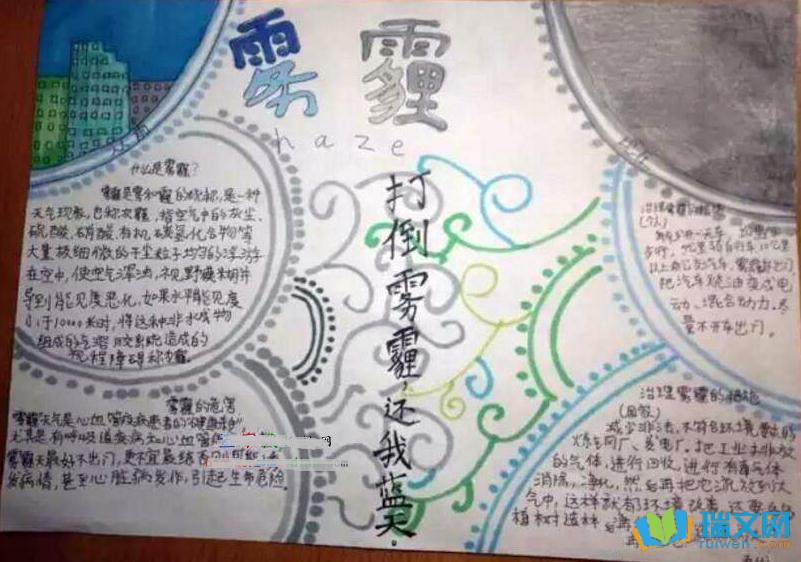 雾霾
haze
什么是雾霾?
雾霾是雾和霾的统称,是一种
天气现象,也称灰霾,指空气中的灰尘、
硫酸、硝酸、有机碳氢化合物等
大量极细微的干尘粒子均匀的浮游
在空中,使空气浑浊,视野模糊并
导到能见度恶化,如果水平能见度
小于10000米时,将这种非水成物
组成的气溶胶系统造成的
视程障碍称灰霾。
雾霾的危害
雾霾天气是心血管疾病患者的"健康杀手"
尤其是有呼吸道疾病和心血管
雾霾天最好不出门,更不宜晨练否
发病情,甚至心脏病发作,引起生命危险。
打倒雾霾,还我蓝天。
(个人)
以上
汽车,雾霾
把汽车烧油变成电
动、混合动力、尽
量不开车出门。
治理雾霾的措施
(国家)
减少非法、不符合环境要求的
炼
厂、发电厂。把工业上排放
的气体,进行回收,进行有毒气体
消除,净化,然后再把它沉放到大
气中,这样就
环境
植树造林
瑞文网
ruiwen.com